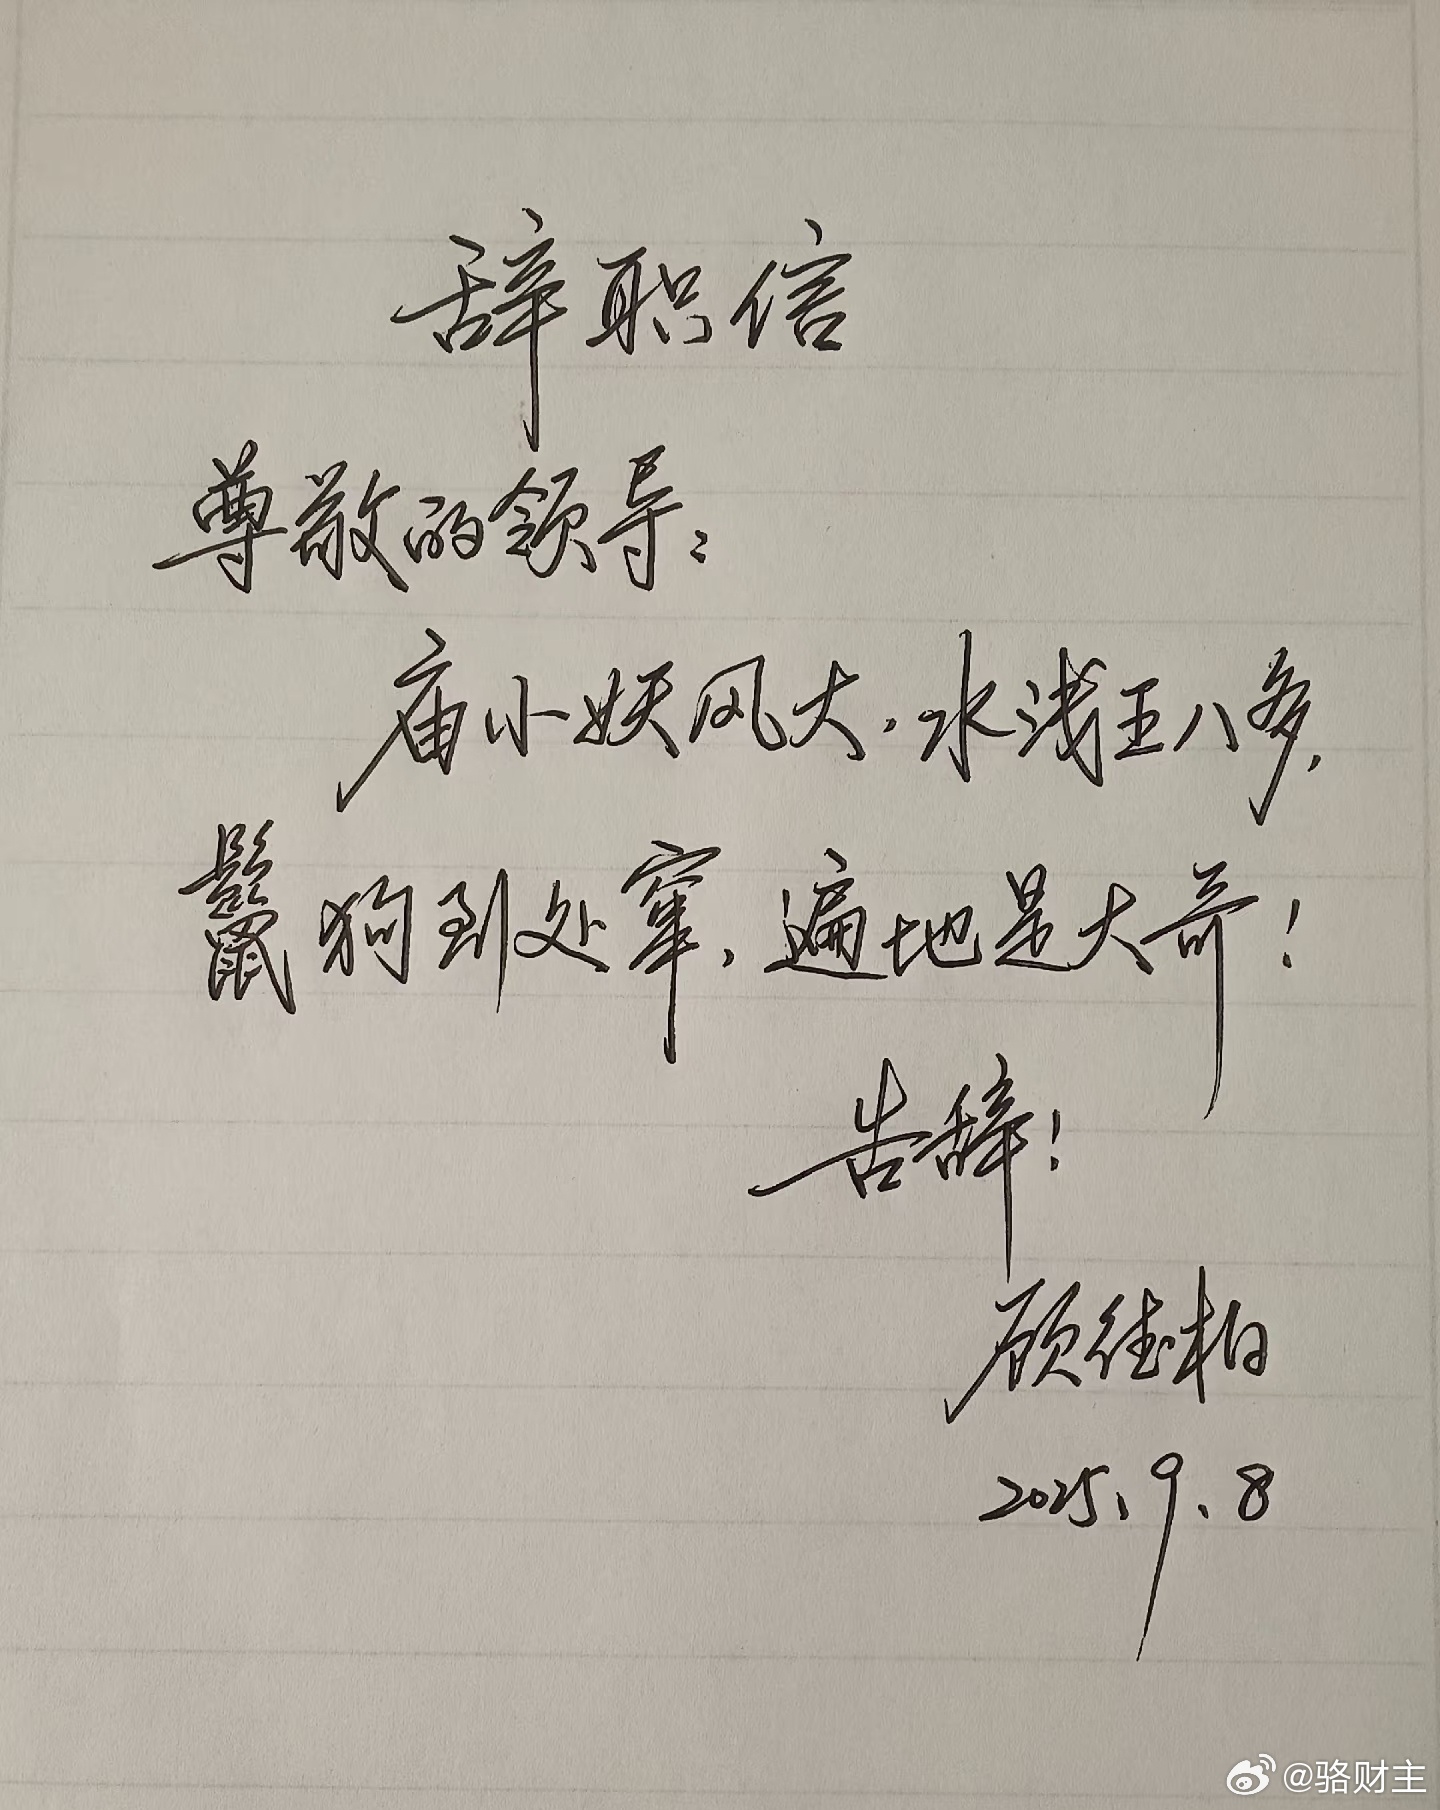 辞职信
尊敬的领导：
庙小妖风大，水浅王八多，
鬣狗到处窜，遍地是大哥！
告辞！
顾往柏
2025.9.8
@骆财主